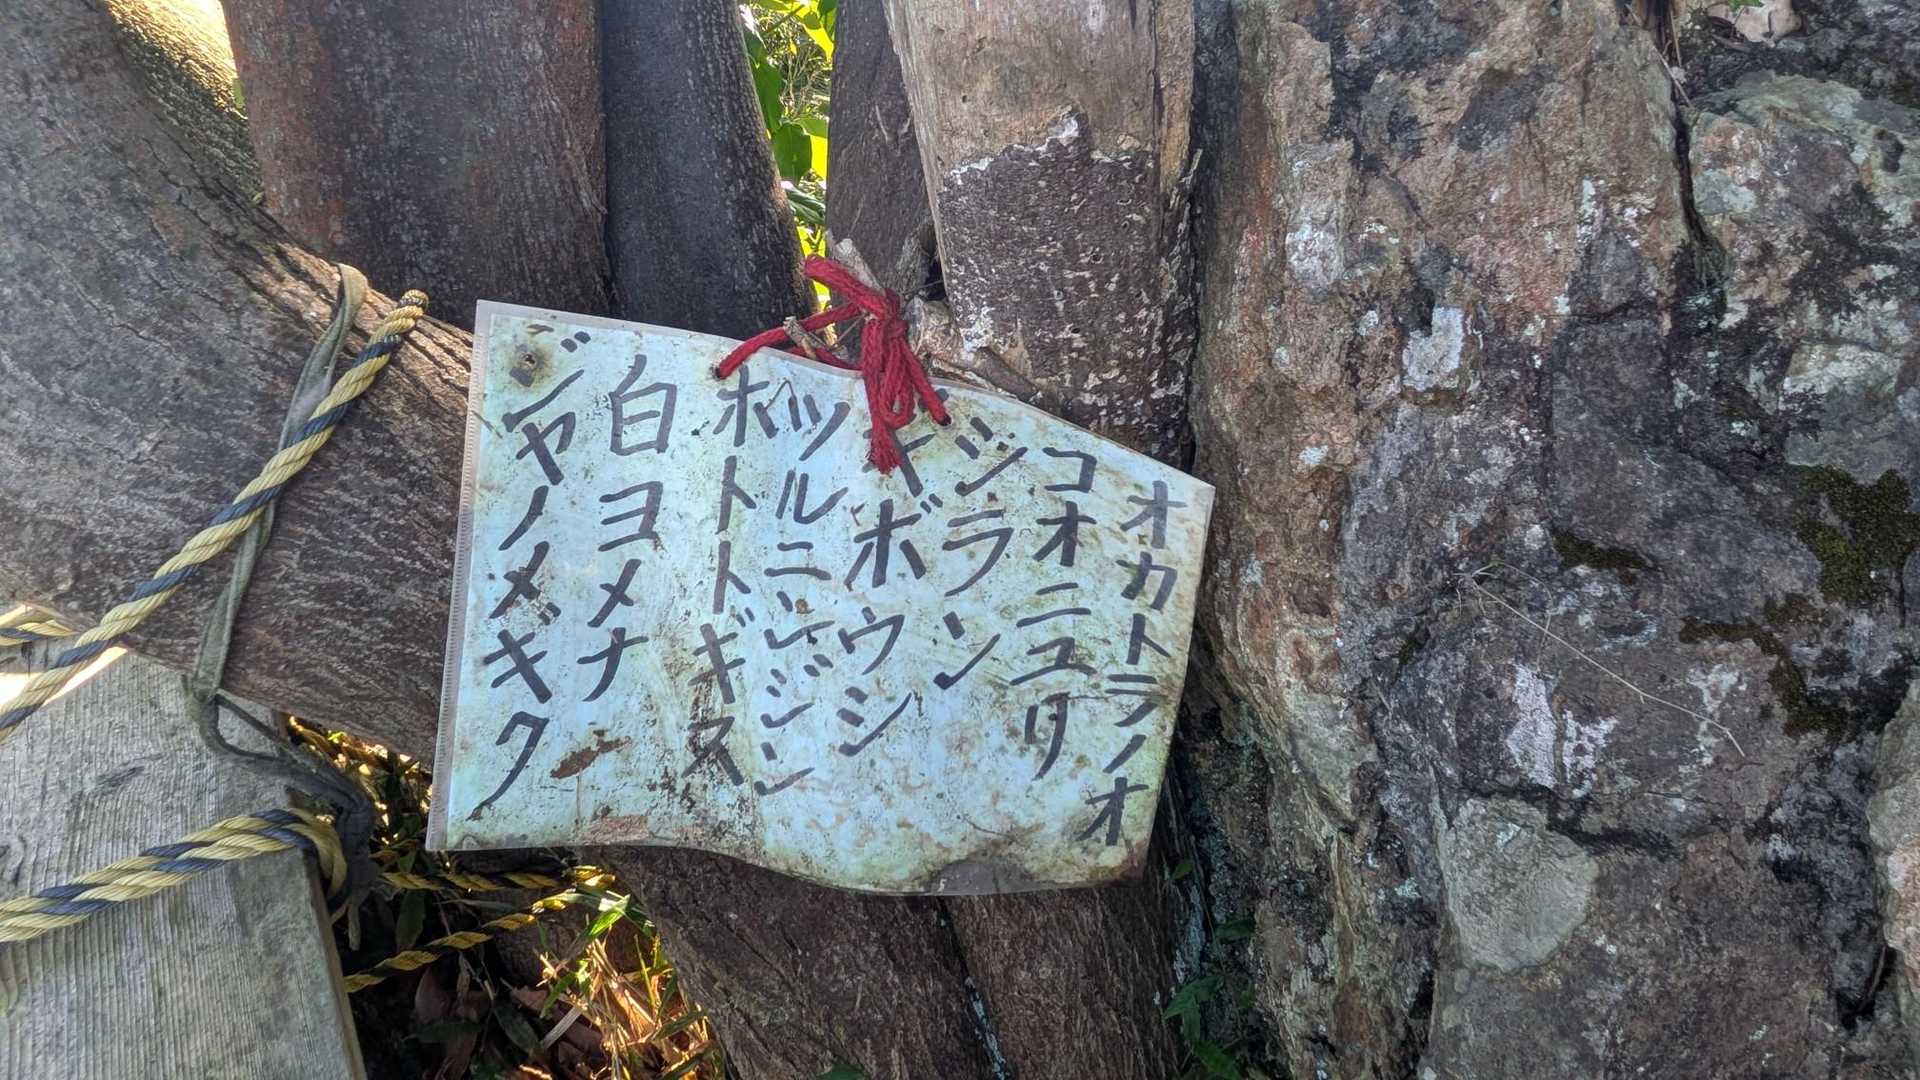 オカトラノオ
コオニユリ
シラン
ギボウシ
ツルニンジン
ホトトギス
白ヨメナ
ジャノメギク